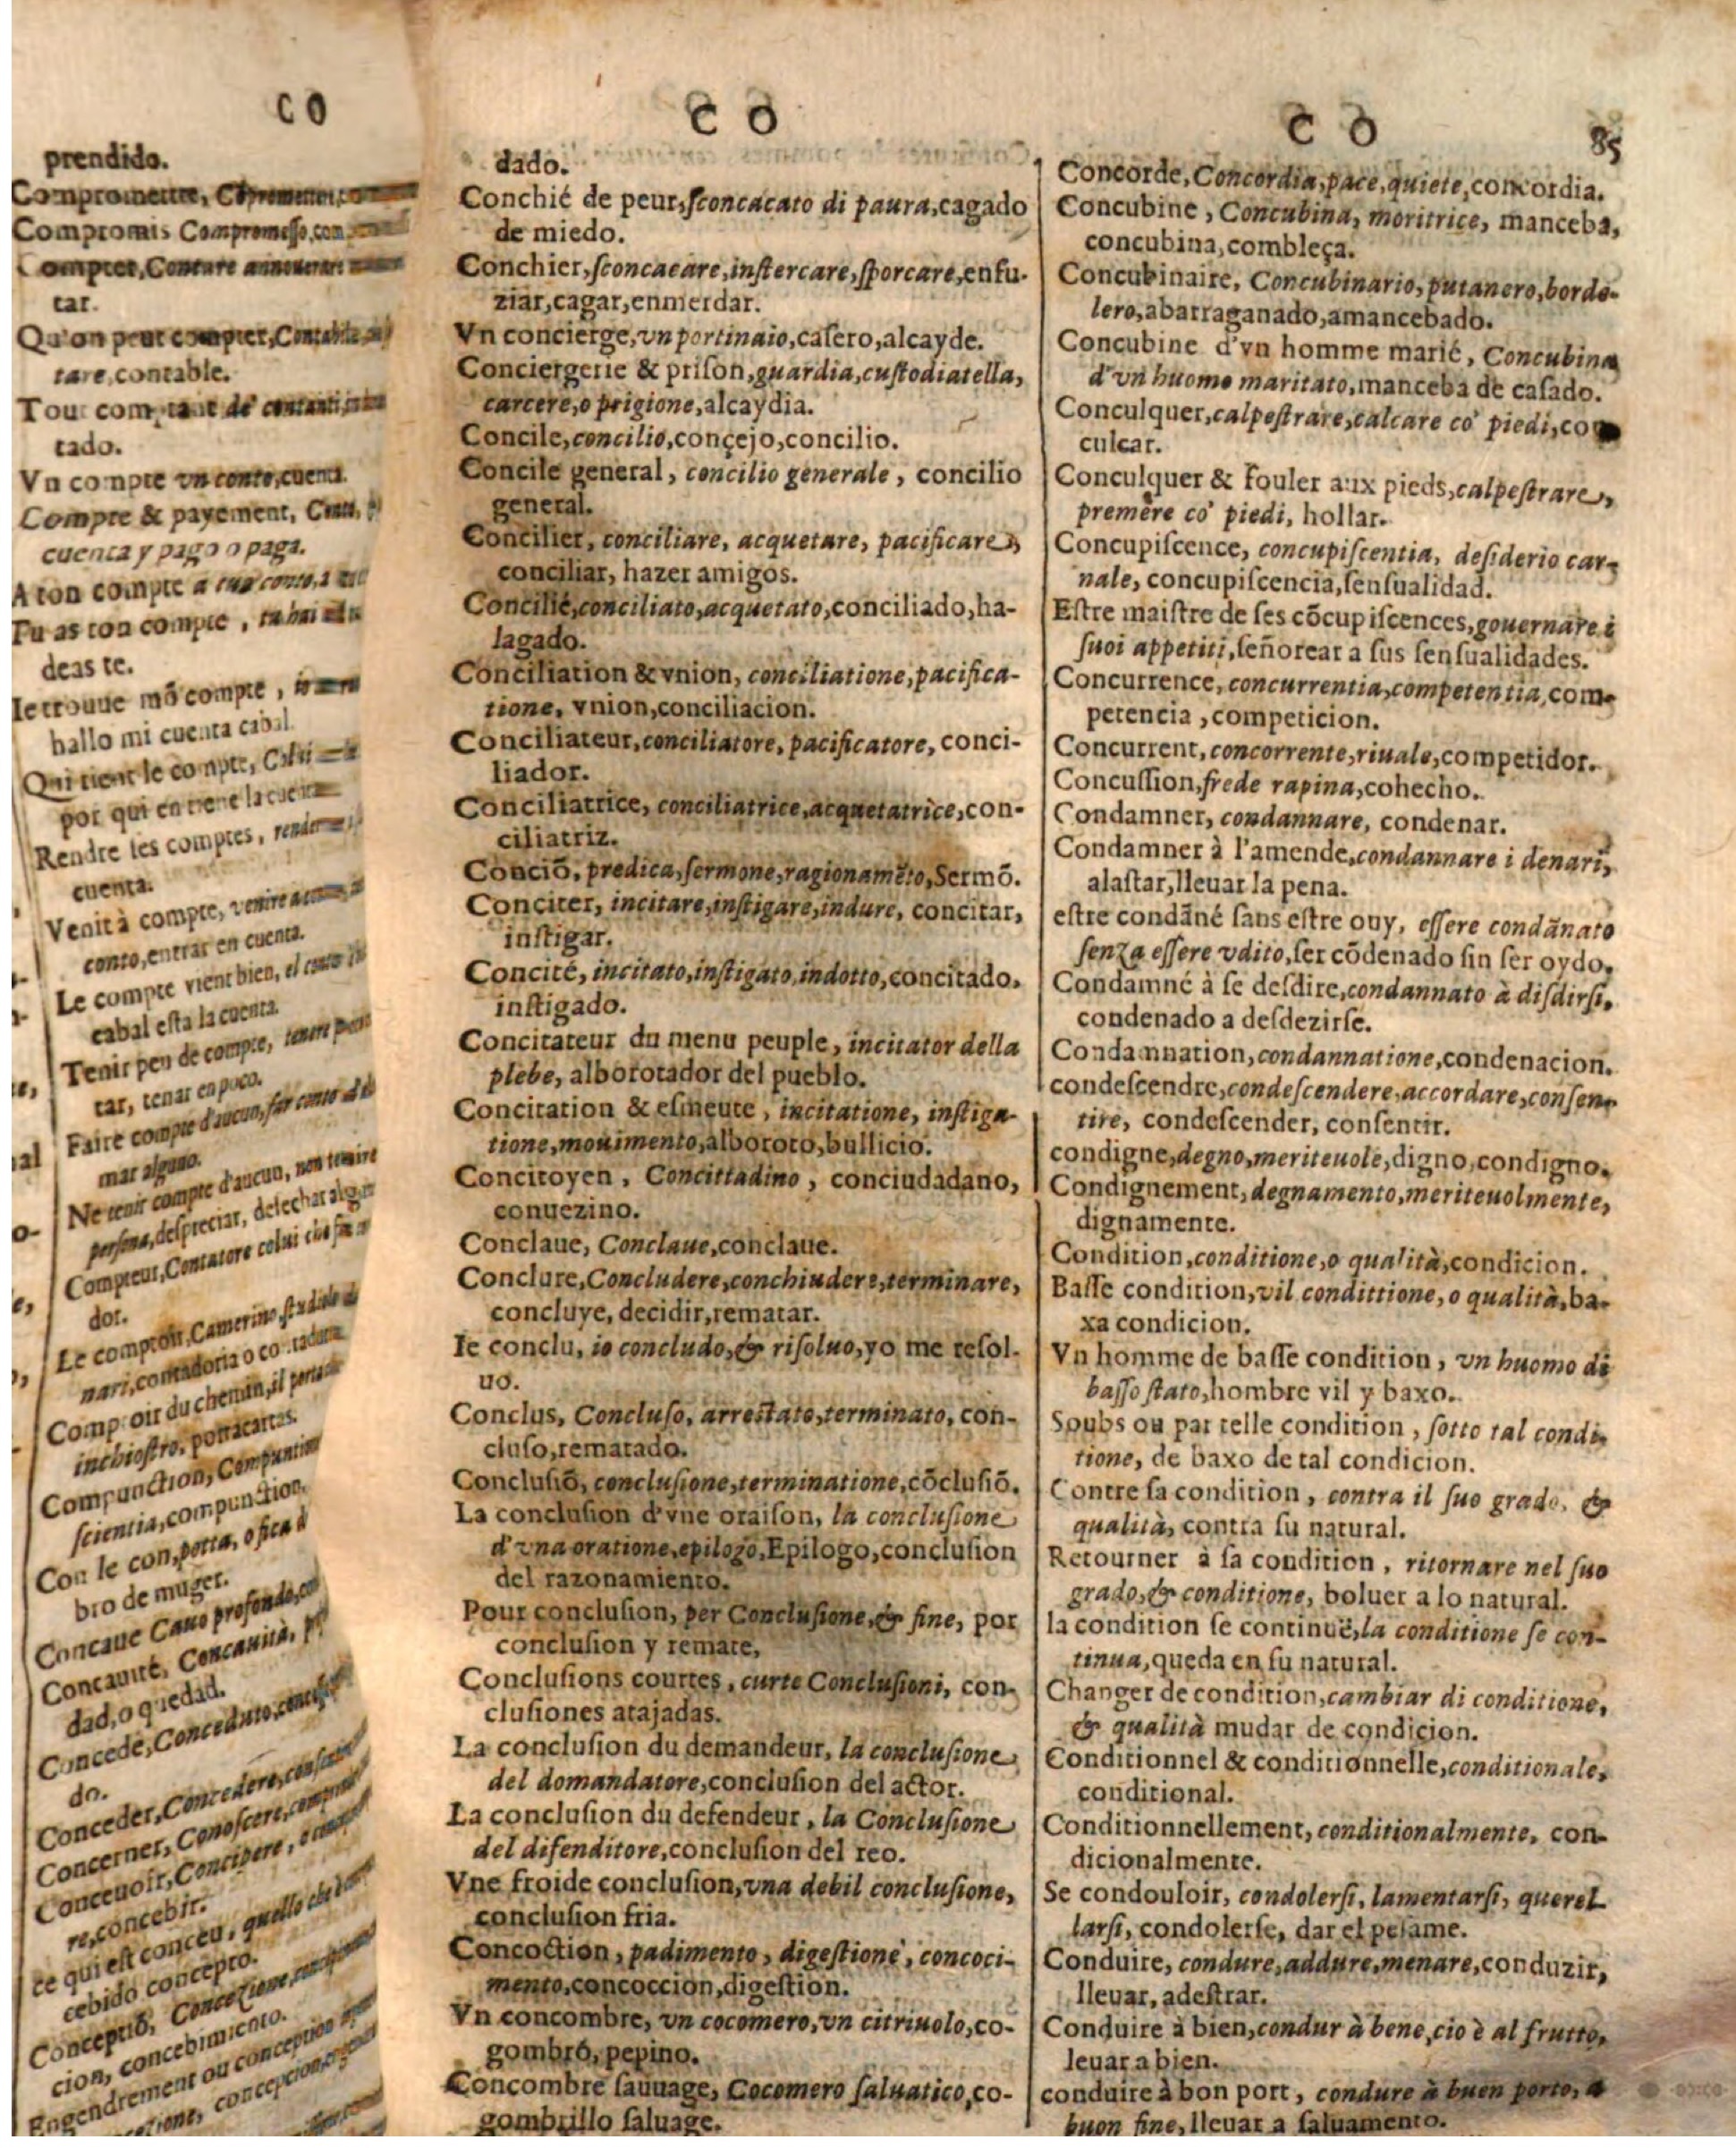 C O
prendido.
Compromis Compromesso,
tar.
Qu'on peut compter,
tare, contable.
tado.
Vn compte vn conto, cuenta.
Compte & payement,
cuenta y pago o paga.
A ton compte a tuo conto,
Tu as ton compte,
deas te.
Ie trouue mõ compte,
hallo mi cuenta cabal.
Qui tient le compte,
por qui en tiene la cuenta
Rendre les comptes,
cuenta.
Venir à compte, venire a
conto, entrar en cuenta.
Le compte vient bien, el conto
cabal esta la cuenta.
Tenir peu de compte,
tar, tenar en poco.
Faire compte d'aucun, far conto
mar alguno.
Ne tenir compte d'aucun, non tenire
persona, despreciar, desechar
Compteur, Contatore colui che
dor.
Le comptoir, Camerino,
nari, contadoria o
Comptoir du chemin, il
inchiostro, portacartas.
Compunction, Compuntione
scientia, compunction,
Con le con, potta, o fica
bro de muger.
Concaue Cauo profondo,
Concauité, Concauità,
dad, o quedad.
Concede, Conceduto,
do.
Conceder, Concedere,
Concerner, Conoscere,
Conceuoir, Concipere,
re, concebir.
ce qui est conceu, quello che
cebido concepto.
Conceptiõ, Concezione,
cion, concebimiento.
Engendrement ou conception
concepcion,
C O
dado.
Conchié de peur, sconcacato di paura, cagado
de miedo.
Conchier, sconcacare, instercare, sporcare, enfu-
ziar, cagar, enmerdar.
Vn concierge, vn portinaio, casero, alcayde.
Conciergerie & prison, guardia, custodiatella,
carcere, o prigione, alcaydia.
Concile, concilio, conçejo, concilio.
Concile general, concilio generale, concilio
general.
Concilier, conciliare, acquetare, pacificare,
conciliar, hazer amigos.
Concilié, conciliato, acquetato, conciliado, ha-
lagado.
Conciliation & vnion, conciliatione, pacifica-
tione, vnion, conciliacion.
Conciliateur, conciliatore, pacificatore, conci-
liador.
Conciliatrice, conciliatrice, acquetatrice, con-
ciliatriz.
Conciõ, predica, sermone, ragionamẽto, Sermõ.
Conciter, incitare, instigare, indure, concitar,
instigar.
Concité, incitato, instigato, indotto, concitado,
instigado.
Concitateur du menu peuple, incitator della
plebe, alborotador del pueblo.
Concitation & esmeute, incitatione, instiga-
tione, mouimento, alboroto, bullicio.
Concitoyen, Concittadino, conciudadano,
conuezino.
Conclaue, Conclaue, conclaue.
Conclure, Concludere, conchiudere, terminare,
concluye, decidir, rematar.
Ie conclu, io concludo, & risoluo, yo me resol-
uo.
Conclus, Concluso, arrestato, terminato, con-
cluso, rematado.
Conclusiõ, conclusione, terminatione, cõclusiõ.
La conclusion d'vne oraison, la conclusione
d'vna oratione, epilogo, Epilogo, conclusion
del razonamiento.
Pour conclusion, per Conclusione, & fine, por
conclusion y remate,
Conclusions courtes, curte Conclusioni, con-
clusiones atajadas.
La conclusion du demandeur, la conclusione
del domandatore, conclusion del actor.
La conclusion du defendeur, la Conclusione
del difenditore, conclusion del reo.
Vne froide conclusion, vna debil conclusione,
conclusion fria.
Concoction, padimento, digestione, concoci-
mento, concoccion, digestion.
Vn concombre, vn cocomero, vn citriuolo, co-
gombró, pepino.
Concombre sauuage, Cocomero saluatico, co-
gombrillo saluage.
C O 85
Concorde, Concordia, pace, quiete, concordia.
Concubine, Concubina, moritrice, manceba,
concubina, combleça.
Concubinaire, Concubinario, putanero, borde-
lero, abarraganado, amancebado.
Concubine d'vn homme marié, Concubina
d'vn huomo maritato, manceba de casado.
Conculquer, calpestrare, calcare co' piedi, con
culcar.
Conculquer & fouler aux pieds, calpestrare,
premere co' piedi, hollar.
Concupiscence, concupiscentia, desiderio car-
nale, concupiscencia, sensualidad.
Estre maistre de ses cõcupiscences, gouernare i
suoi appetiti, señorear a sus sensualidades.
Concurrence, concurrentia, competentia, com-
petencia, competicion.
Concurrent, concorrente, riuale, competidor.
Concussion, frede rapina, cohecho.
Condamner, condannare, condenar.
Condamner à l'amende, condannare i denari,
alastar, lleuar la pena.
estre condãné sans estre ouy, essere condãnato
senza essere vdito, ser cõdenado sin ser oydo.
Condamné à se desdire, condannato à disdirsi,
condenado a desdezirse.
Condamnation, condannatione, condenacion.
condescendre, condescendere, accordare, consen-
tire, condescender, consentir.
condigne, degno, meriteuole, digno, condigno.
Condignement, degnamento, meriteuolmente,
dignamente.
Condition, conditione, o qualità, condicion.
Basse condition, vil condittione, o qualità, ba-
xa condicion.
Vn homme de basse condition, vn huomo di
basso stato, hombre vil y baxo.
Soubs ou par telle condition, sotto tal condi-
tione, de baxo de tal condicion.
Contre sa condition, contra il suo grado, &
qualità, contra su natural.
Retourner à sa condition, ritornare nel suo
grado, & conditione, boluer a lo natural.
la condition se continuë, la conditione se con-
tinua, queda en su natural.
Changer de condition, cambiar di conditione,
& qualità mudar de condicion.
Conditionnel & conditionnelle, conditionale,
conditional.
Conditionnellement, conditionalmente, con-
dicionalmente.
Se condouloir, condolersi, lamentarsi, querel-
larsi, condolerse, dar el pesame.
Conduire, condure, addure, menare, conduzir,
lleuar, adestrar.
Conduire à bien, condur à bene, cio è al frutto,
leuar a bien.
conduire à bon port, condure à buen porto, a
buon fine, lleuar a saluamento.